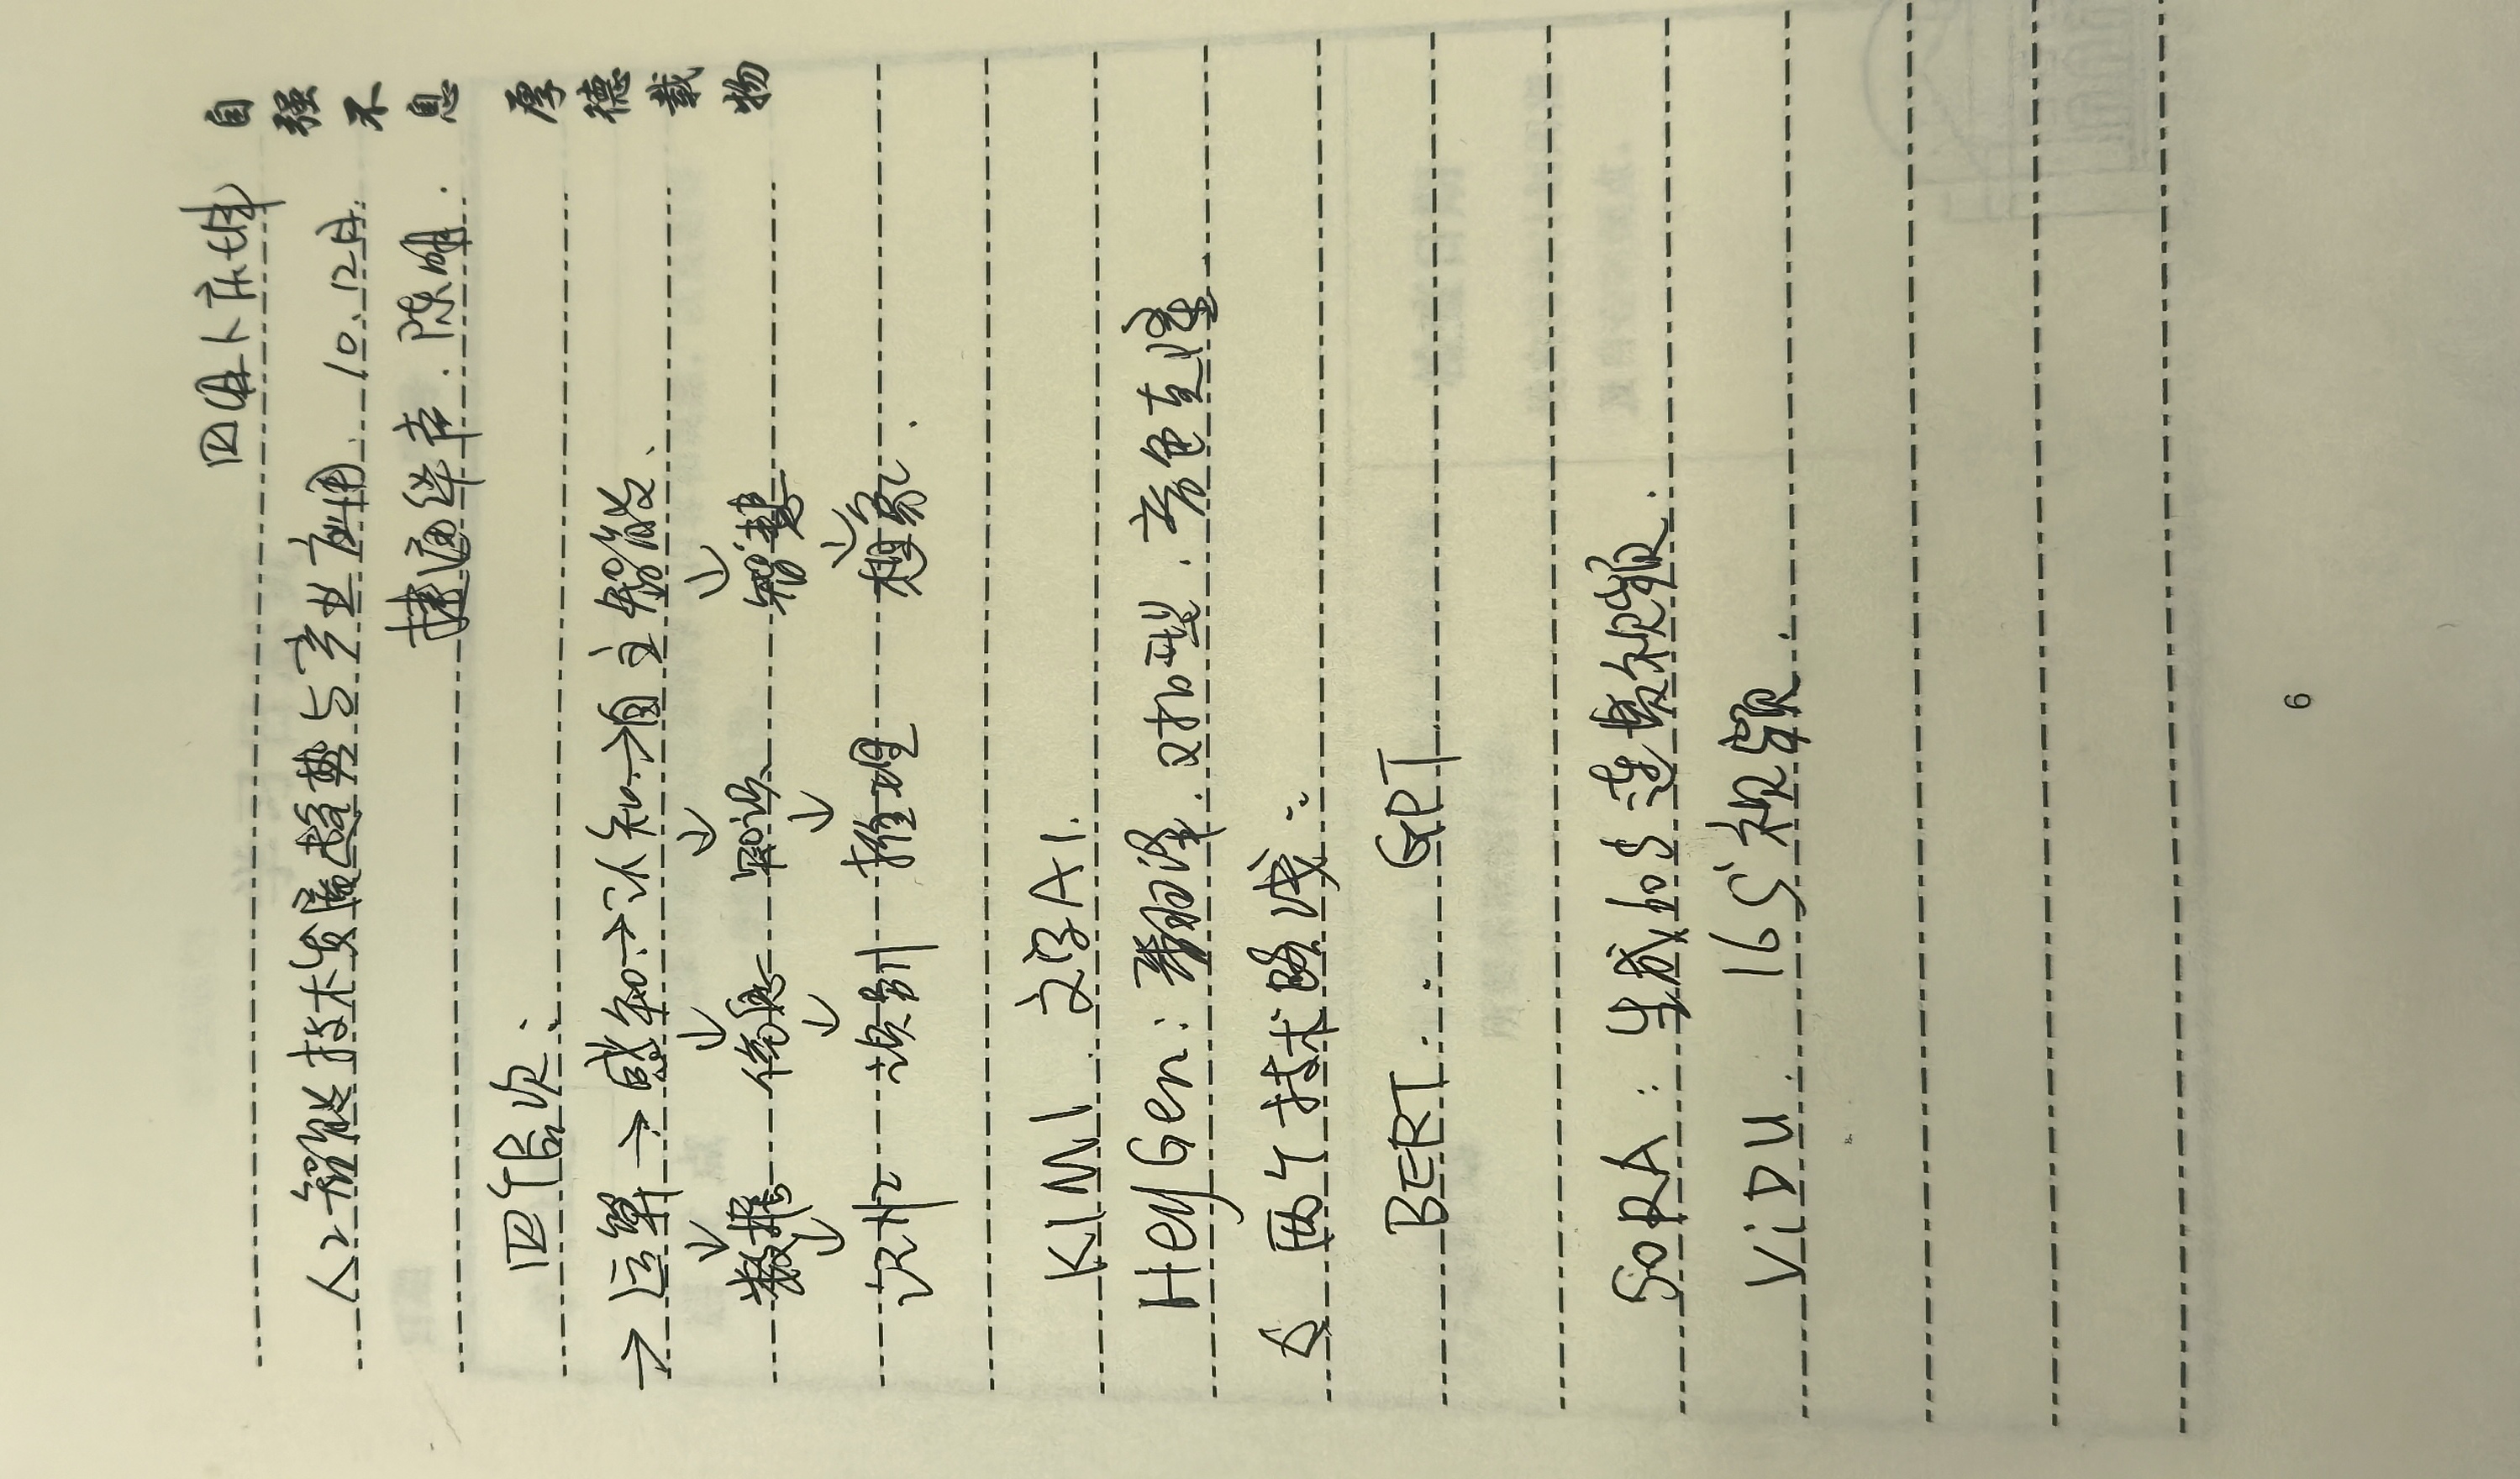 自强不息 厚德载物
四月八下午
人工智能技术发展趋势与产业应用 10.12月.
捷通华声.陈明.
四个层次:
→运算→感知→认知→自主智能.
↓ ↓ ↓ ↓
数据 信息 知识 智慧
↓ ↓ ↓ ↓
识别 推理 想象.
KIMI. 文字AI.
HeyGen: 翻译.对口型.音色克隆
两个技术路线:
BERT. GPT
SORA: 生成60S连贯视频.
ViDU. 16S视频.
6